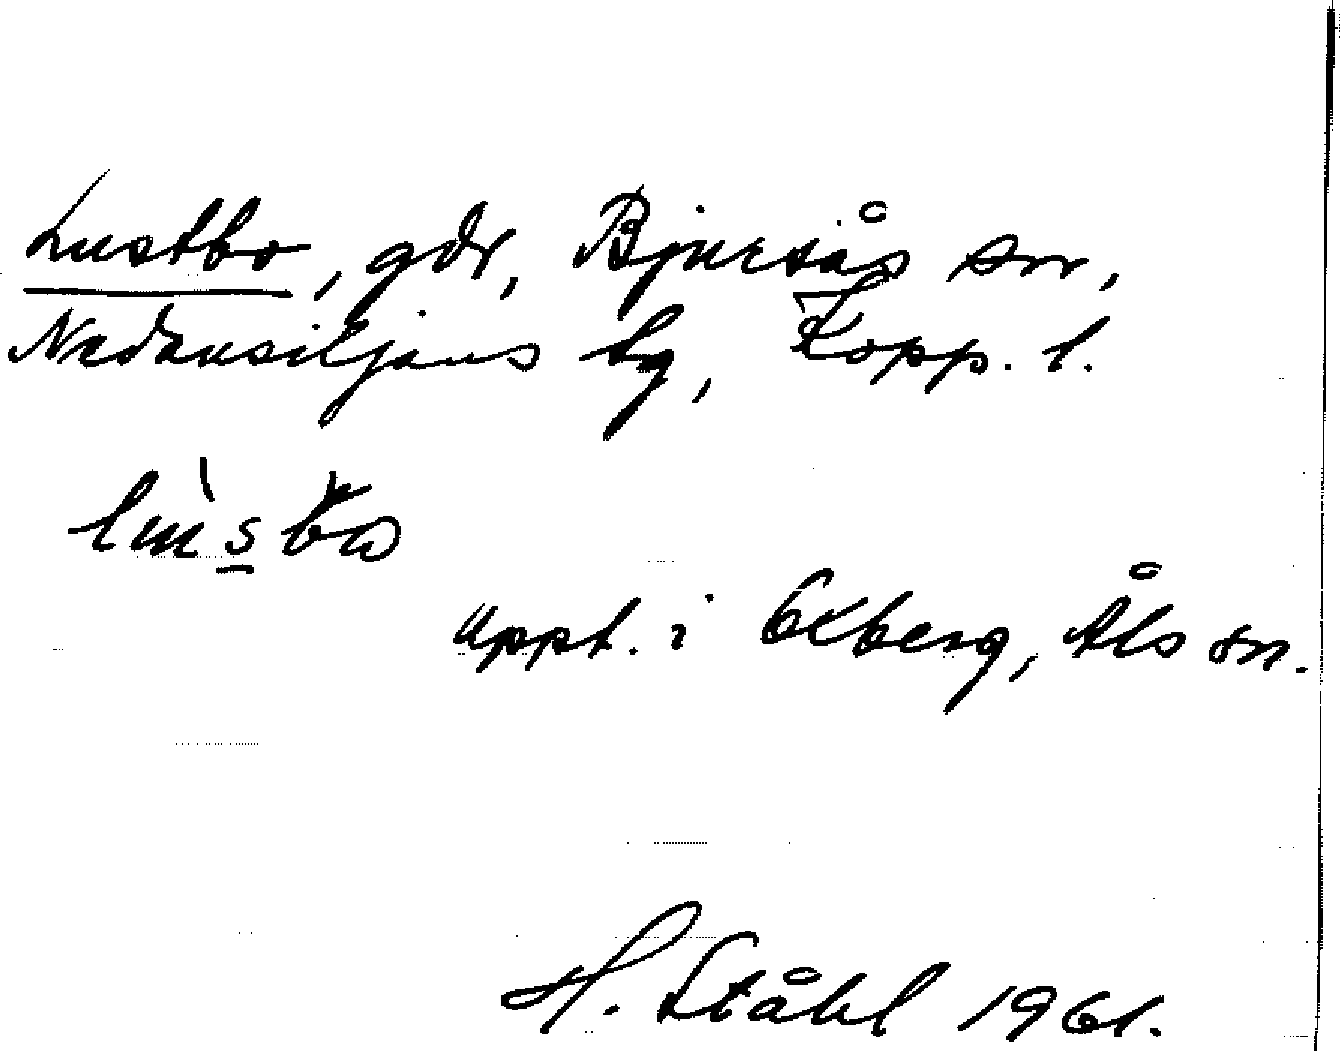 Lustbo, gdr, Bjursås sn,
Nedansiljans tg, Kopp. l.
uppt. i Ekberg, Åls sn.
H. Ståhl 1961.